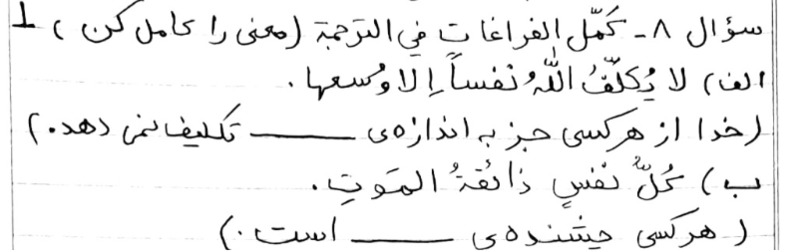 سؤال ۸- كَمِّل الفراغات في الترجمة (معنی را کامل کن) ۱
الف) لا يُكلِّفُ اللّٰهُ نَفساً إلا وُسعها.
(خدا از هر کسی جز به اندازه‌ی ــــــــ تکلیف نمی دهد.)
ب) كُلُّ نَفْسٍ ذائقةُ المَوتِ.
(هر کسی چشنده‌ی ــــــــ است.)